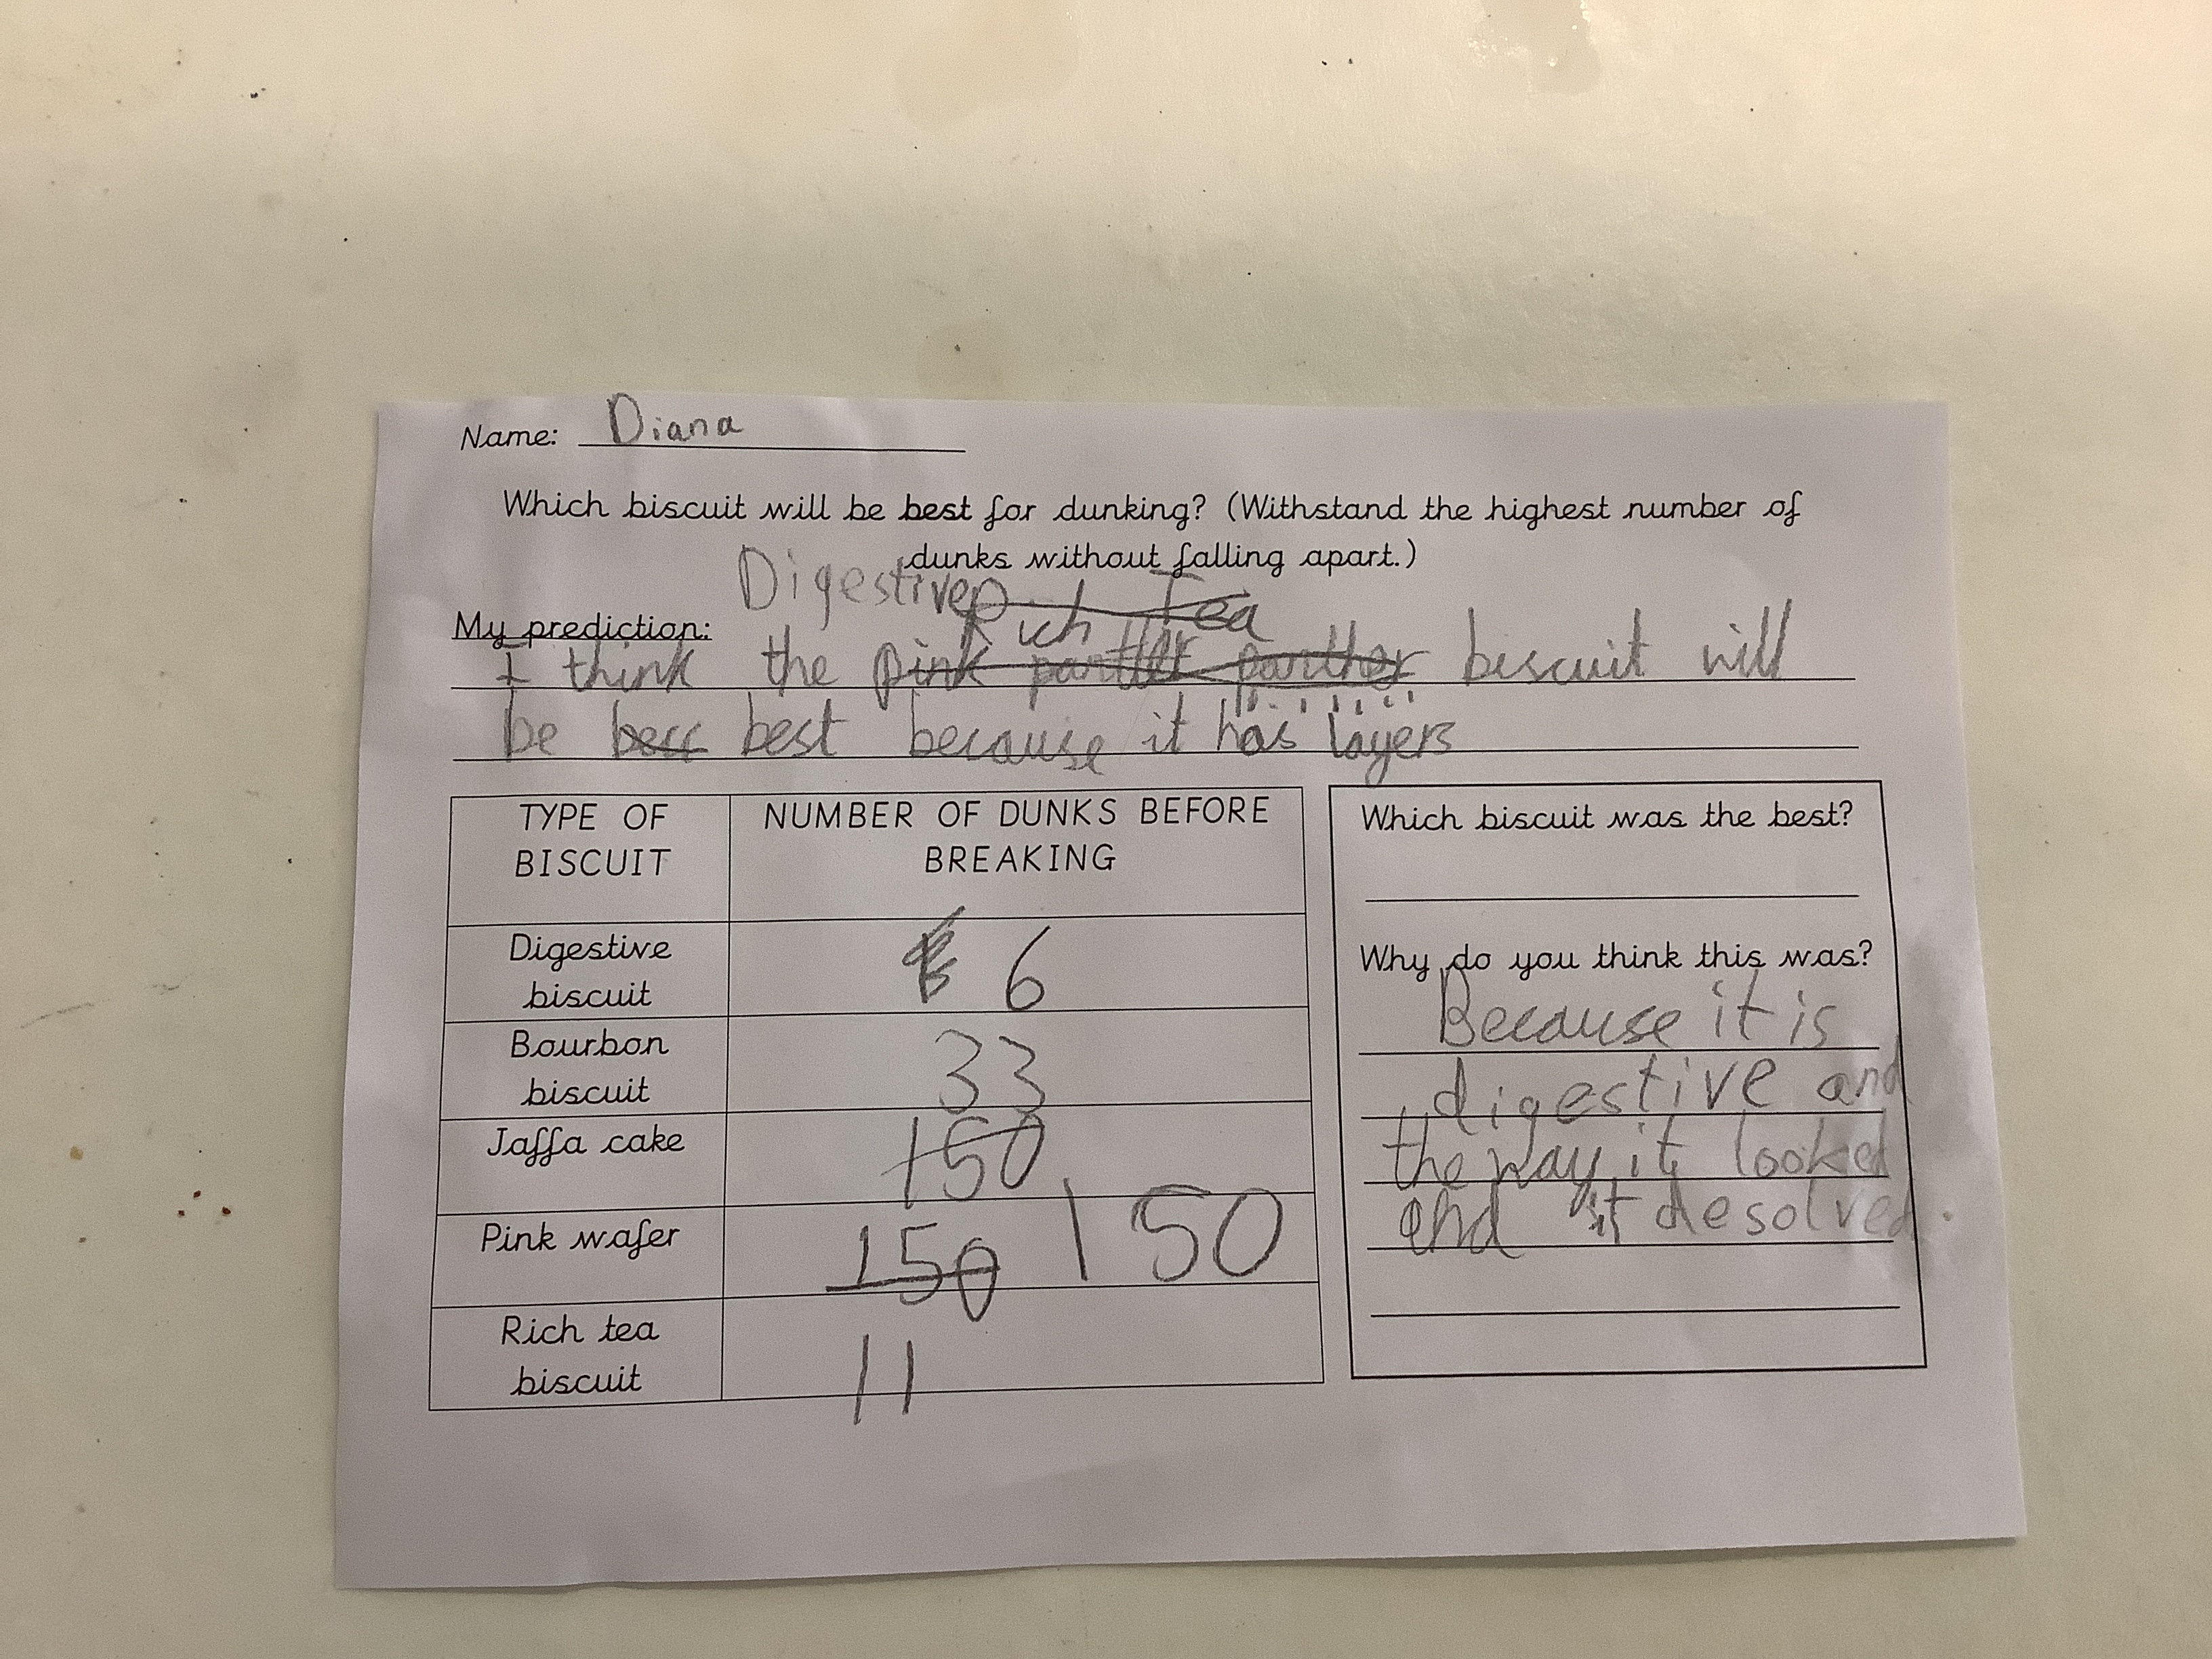 Name: Diana
Which biscuit will be best for dunking? (Withstand the highest number of
dunks without falling apart.)
Digestive Rich Tea
My prediction:
I think the pink panther biscuit will
be best because it has layers
TYPE OF BISCUIT
NUMBER OF DUNKS BEFORE BREAKING
Digestive biscuit
6
Bourbon biscuit
33
Jaffa cake
150
Pink wafer
150 150
Rich tea biscuit
11
Which biscuit was the best?
Why do you think this was?
Because it is
digestive and
the way it looked
and it desolved